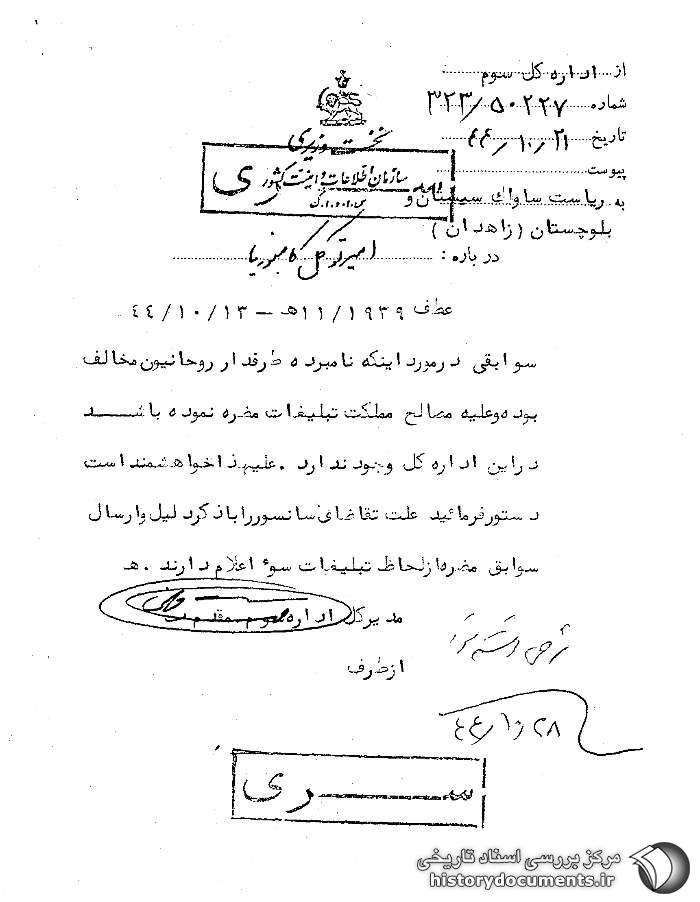 از اداره کل سوم
شماره ۳۲۳/۵۰۲۲۷
تاریخ ۴۴/۱۰/۲۱
پیوست
نخست وزیری
سازمان اطلاعات و امنیت کشور
س.ا.و.ا.ک
سری
به ریاست ساواک سیستان و
بلوچستان (زاهدان)
درباره: امیر توکل کامبوزیا
عطف ۱۱/۱۹۳۹هـ - ۴۴/۱۰/۱۳
سوابقی درمورد اینکه نامبرده طرفدار روحانیون مخالف
بوده وعلیه مصالح مملکت تبلیغات مضره نموده باشد
دراین اداره کل وجود ندارد. علیهذا خواهشمند است
دستور فرمائید علت تقاضای سانسور را با ذکر دلیل وارسال
سوابق مضره ازلحاظ تبلیغات سوء اعلام دارند. هـ
مدیر کل اداره سوم مقدم
ازطرف
۴۴/۱۰/۲۸
سری
مرکز بررسی اسناد تاریخی
historydocuments.ir